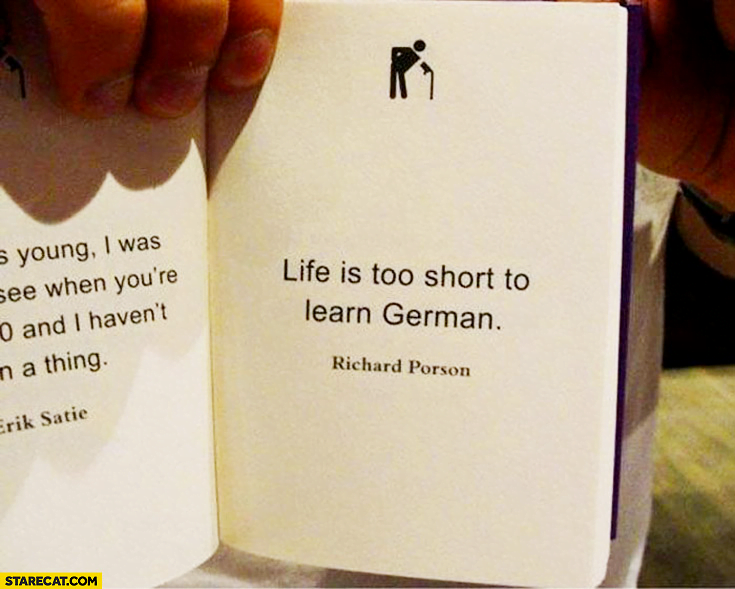 s young, I was
see when you're
0 and I haven't
n a thing.
Erik Satie
Life is too short to
learn German.
Richard Porson
STARECAT.COM